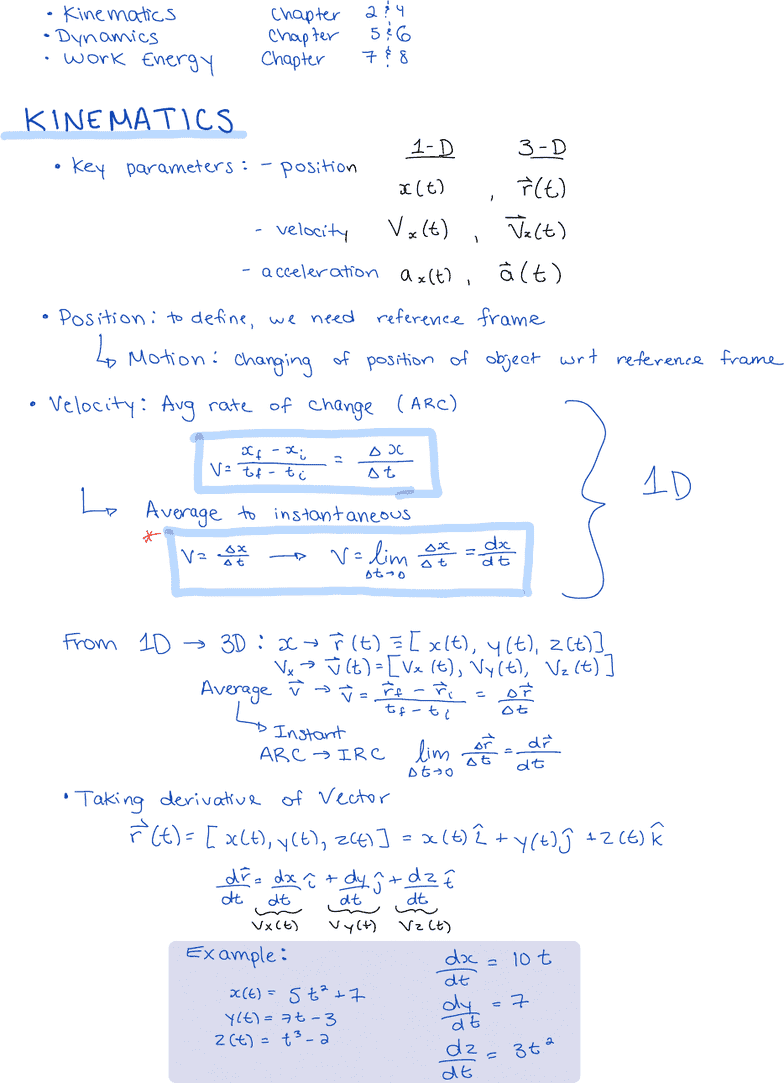 • Kinematics Chapter 2 & 4
• Dynamics Chapter 5 & 6
• Work Energy Chapter 7 & 8
KINEMATICS
1-D 3-D
• Key parameters: - position x(t), r⃗(t)
- velocity Vₓ(t), V⃗z(t)
- acceleration aₓ(t), a⃗(t)
• Position: to define, we need reference frame
↳ Motion: changing of position of object wrt reference frame
• Velocity: Avg rate of change (ARC)
V = (x_f - x_i)/(t_f - t_i) = Δx/Δt
1D
↳ Average to instantaneous
* V = Δx/Δt → V = lim Δt→0 Δx/Δt = dx/dt
From 1D → 3D: x → r⃗(t) ≡ [x(t), y(t), z(t)]
Vₓ → v⃗(t) = [Vx(t), Vy(t), Vz(t)]
Average v⃗ → v⃗ = (r⃗_f - r⃗_i)/(t_f - t_i) = Δr⃗/Δt
↳ Instant
ARC → IRC lim Δt→0 Δr⃗/Δt = dr⃗/dt
• Taking derivative of Vector
r⃗(t) = [x(t), y(t), z(t)] = x(t) î + y(t) ĵ + z(t) k̂
dr⃗/dt = dx/dt î + dy/dt ĵ + dz/dt t̂
Vx(t) Vy(t) Vz(t)
Example:
x(t) = 5t² + 7
y(t) = 7t - 3
z(t) = t³ - 2
dx/dt = 10t
dy/dt = 7
dz/dt = 3t²